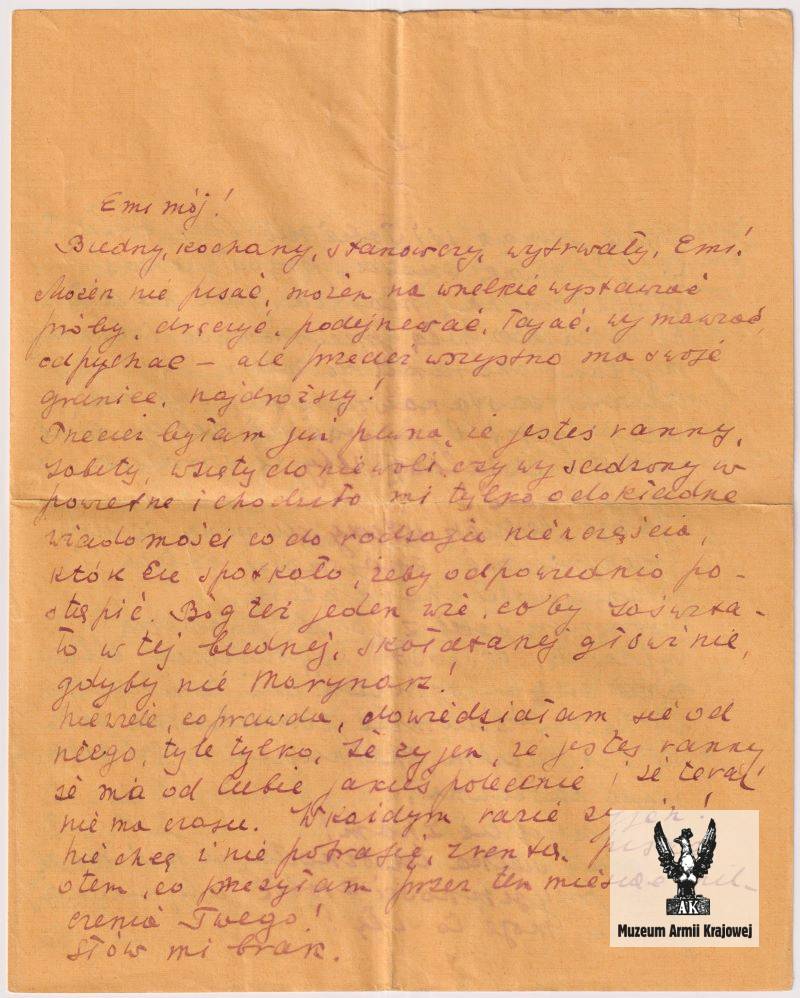 Emi mój!
Biedny, kochany, stanowczy, wytrwały, Emi!
Możesz nie pisać, możesz na wszelkie wystawiać
próby, dręczyć, podejrzewać, łajać, wymawiać,
odpychać – ale przecież wszystko ma swoje
granice, najdroższy!
Przecież byłam już pewna, że jesteś ranny,
zabity, wzięty do niewoli czy wysadzony w
powietrze i chodziło mi tylko o dokładne
wiadomości co do rodzaju nieszczęścia,
które Cię spotkało, żeby odpowiednio po-
stąpić. Bóg też jeden wie, co by zaświta-
ło w tej biednej, skołatanej głowinie,
gdyby nie Marynarz!
Niewiele, coprawda, dowiedziałam się od
niego, tyle tylko, że żyjesz, że jesteś ranny
że ma od Ciebie jakieś polecenie i że teraz
nie ma czasu. W każdym razie żyjesz!
Nie chcę i nie potrafię, zresztą,
o tem, co przeżyłam przez ten miesiąc mil-
czenia Twego!
Słów mi brak.
AK
Muzeum Armii Krajowej